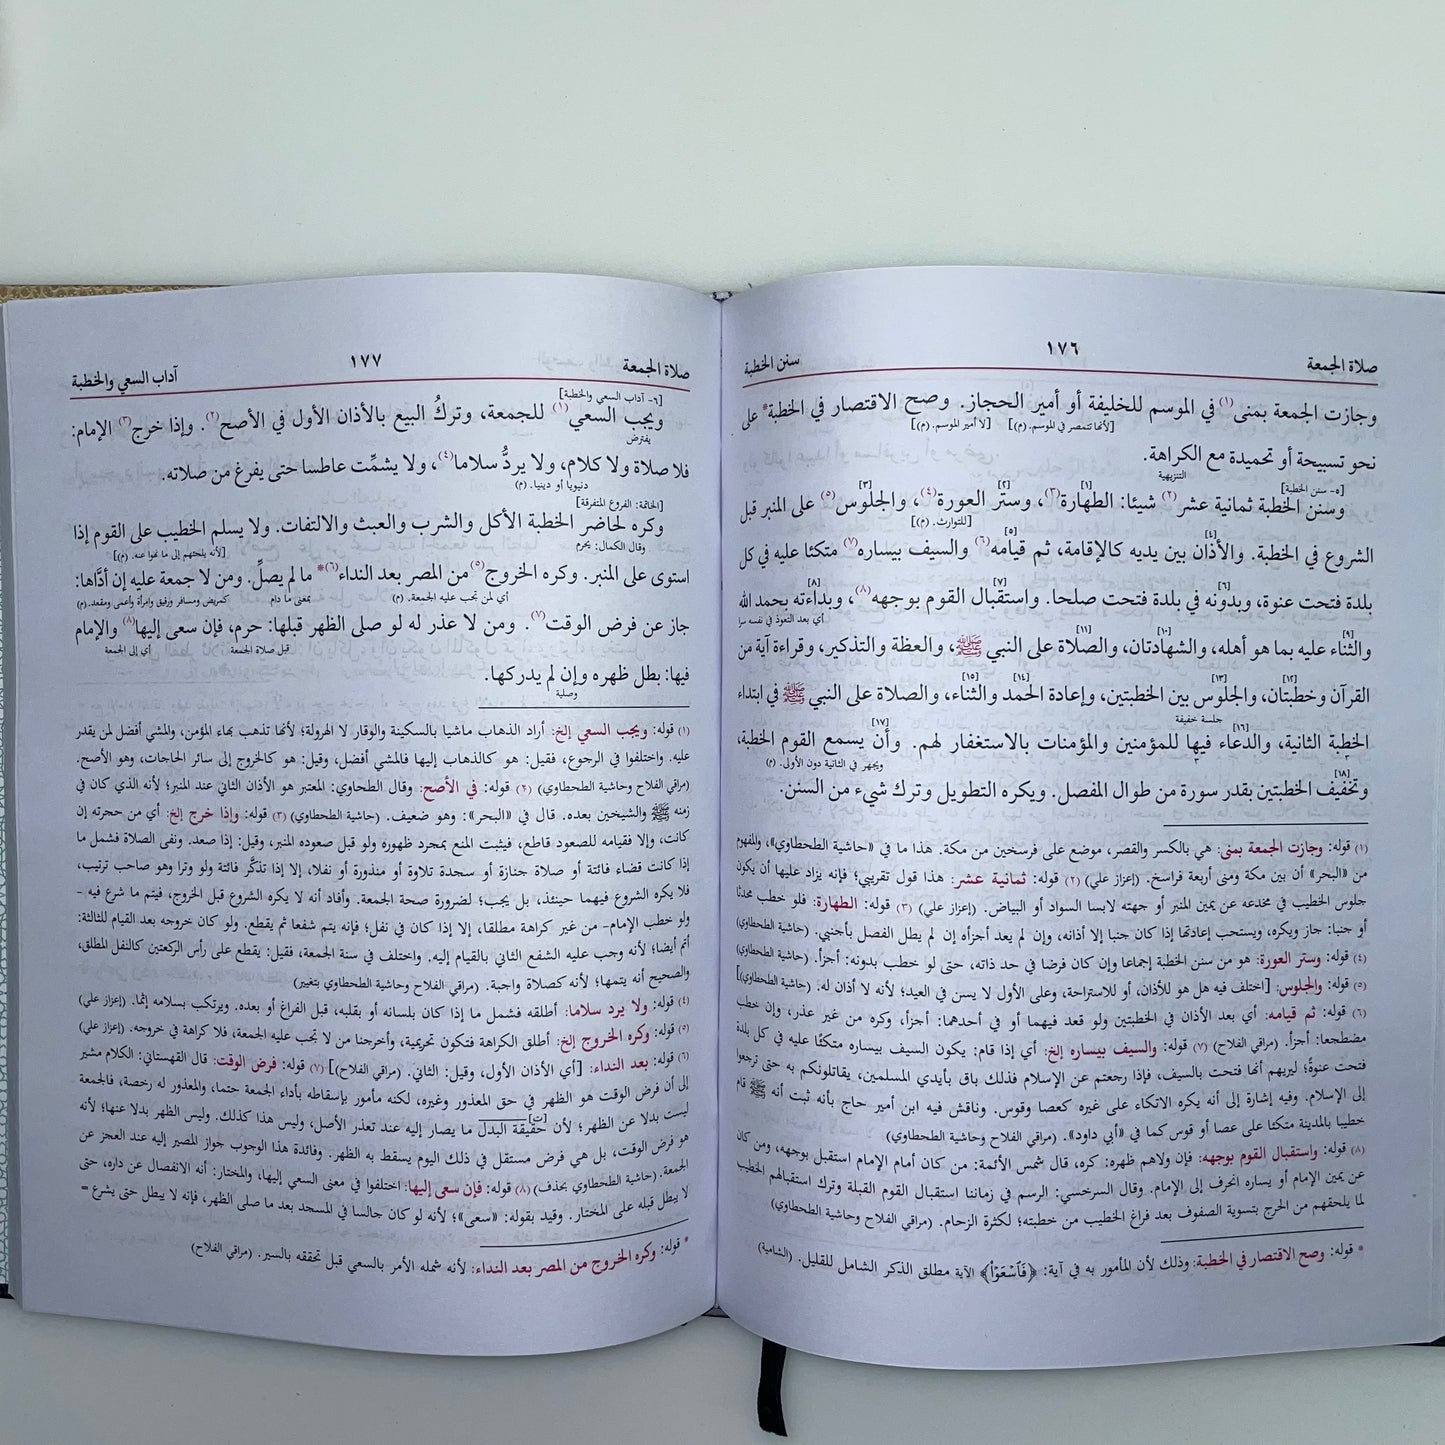 صلاة الجمعة ١٧٦ سنن الخطبة
وجازت الجمعة بمنى(١) في الموسم للخليفة أو أمير الحجاز. وصح الاقتصار في الخطبة* على
[لأنها تتمصر في الموسم. (م)] [لا أمير الموسم. (م)]
نحو تسبيحة أو تحميدة مع الكراهة.
التنزيهية
[٥- سنن الخطبة] [١] [٢] [٣]
وسنن الخطبة ثمانية عشر(٢) شيئا: الطهارة(٣)، وستر العورة(٤)، والجلوس(٥) على المنبر قبل
[للتوارث. (م)]
[٤] [٥]
الشروع في الخطبة. والأذان بين يديه كالإقامة، ثم قيامه(٦) والسيف بيساره(٧) متكئا عليه في كل
[٦] [٧] [٨]
بلدة فتحت عنوة، وبدونه في بلدة فتحت صلحا. واستقبال القوم بوجهه(٨)، وبداءته بحمد الله
أي بعد التعوذ في نفسه سرا
[٩] [١٠] [١١]
والثناء عليه بما هو أهله، والشهادتان، والصلاة على النبي ﷺ، والعظة والتذكير، وقراءة آية من
[١٢] [١٣] [١٤] [١٥]
القرآن وخطبتان، والجلوس بين الخطبتين، وإعادة الحمد والثناء، والصلاة على النبي ﷺ في ابتداء
جلسة خفيفة
[١٦] [١٧]
الخطبة الثانية، والدعاء فيها للمؤمنين والمؤمنات بالاستغفار لهم. وأن يسمع القوم الخطبة،
ويجهر في الثانية دون الأولى. (م)
[١٨]
وتخفيف الخطبتين بقدر سورة من طوال المفصل. ويكره التطويل وترك شيء من السنن.
(١) قوله: وجازت الجمعة بمنى: هي بالكسر والقصر، موضع على فرسخين من مكة. هذا ما في «حاشية الطحطاوي»، والمفهوم
من «البحر» أن بين مكة ومنى أربعة فراسخ. (إعزاز علي) (٢) قوله: ثمانية عشر: هذا قول تقريبي؛ فإنه يزاد عليها أن يكون
جلوس الخطيب في مخدعه عن يمين المنبر أو جهته لابسا السواد أو البياض. (إعزاز علي) (٣) قوله: الطهارة: فلو خطب محدثا
أو جنبا: جاز ويكره، ويستحب إعادتها إذا كان جنبا إلا أذانه، وإن لم يعد أجزأه إن لم يطل الفصل بأجنبي. (حاشية الطحطاوي)
(٤) قوله: وستر العورة: هو من سنن الخطبة إجماعا وإن كان فرضا في حد ذاته، حتى لو خطب بدونه: أجزأ. (حاشية الطحطاوي)
(٥) قوله: والجلوس: [اختلف فيه هل هو للأذان، أو للاستراحة، وعلى الأول لا يسن في العيد؛ لأنه لا أذان له: (حاشية الطحطاوي)]
(٦) قوله: ثم قيامه: أي بعد الأذان في الخطبتين ولو قعد فيهما أو في أحدهما: أجزأ، وكره من غير عذر، وإن خطب
مضطجعا: أجزأ. (مراقي الفلاح) (٧) قوله: والسيف بيساره إلخ: أي إذا قام: يكون السيف بيساره متكئا عليه في كل بلدة
فتحت عنوةً؛ ليريهم أنها فتحت بالسيف، فإذا رجعتم عن الإسلام فذلك باق بأيدي المسلمين، يقاتلونكم به حتى ترجعوا
إلى الإسلام. وفيه إشارة إلى أنه يكره الاتكاء على غيره كعصا وقوس. وناقش فيه ابن أمير حاج بأنه ثبت أنه ﷺ قام
خطيبا بالمدينة متكئا على عصا أو قوس كما في «أبي داود». (مراقي الفلاح وحاشية الطحطاوي)
(٨) قوله: واستقبال القوم بوجهه: فإن ولاهم ظهره: كره، قال شمس الأئمة: من كان أمام الإمام استقبل بوجهه، ومن كان
عن يمين الإمام أو يساره انحرف إلى الإمام. وقال السرخسي: الرسم في زماننا استقبال القوم القبلة وترك استقبالهم الخطيب
لما يلحقهم من الحرج بتسوية الصفوف بعد فراغ الخطيب من خطبته؛ لكثرة الزحام. (مراقي الفلاح وحاشية الطحطاوي)
* قوله: وصح الاقتصار في الخطبة: وذلك لأن المأمور به في آية: ﴿فَٱسْعَوْا۟﴾ الآية مطلق الذكر الشامل للقليل. (الشامية)
صلاة الجمعة ١٧٧ آداب السعي والخطبة
[٦- آداب السعي والخطبة]
ويجب السعي(١) للجمعة، وتركُ البيع بالأذان الأول في الأصح(٢). وإذا خرج(٣) الإمام:
يفترض
فلا صلاة ولا كلام، ولا يردُّ سلاما(٤)، ولا يشمِّت عاطسا حتى يفرغ من صلاته.
دنيويا أو دينيا. (م)
[الخاتمة: الفروع المتفرقة]
وكره لحاضر الخطبة الأكل والشرب والعبث والالتفات. ولا يسلم الخطيب على القوم إذا
وقال الكمال: يحرم [لأنه يلجئهم إلى ما نهوا عنه. (م)]
استوى على المنبر. وكره الخروج(٥) من المصر بعد النداء(٦)* ما لم يصلِّ. ومن لا جمعة عليه إن أدَّاها:
أي لمن تجب عليه الجمعة. (م) بمعنى ما دام كمريض ومسافر ورقيق وامرأة وأعمى ومقعد. (م)
جاز عن فرض الوقت(٧). ومن لا عذر له لو صلى الظهر قبلها: حرم، فإن سعى إليها(٨) والإمام
قبل صلاة الجمعة أي إلى الجمعة
فيها: بطل ظهره وإن لم يدركها.
وصلية
(١) قوله: ويجب السعي إلخ: أراد الذهاب ماشيا بالسكينة والوقار لا الهرولة؛ لأنها تذهب بهاء المؤمن، والمشي أفضل لمن يقدر
عليه. واختلفوا في الرجوع، فقيل: هو كالذهاب إليها فالمشي أفضل، وقيل: هو كالخروج إلى سائر الحاجات، وهو الأصح.
(مراقي الفلاح وحاشية الطحطاوي) (٢) قوله: في الأصح: وقال الطحاوي: المعتبر هو الأذان الثاني عند المنبر؛ لأنه الذي كان في
زمنه ﷺ والشيخين بعده. قال في «البحر»: وهو ضعيف. (حاشية الطحطاوي) (٣) قوله: وإذا خرج إلخ: أي من حجرته إن
كانت، وإلا فقيامه للصعود قاطع، فيثبت المنع بمجرد ظهوره ولو قبل صعوده المنبر، وقيل: إذا صعد. ونفى الصلاة فشمل ما
إذا كانت قضاء فائتة أو صلاة جنازة أو سجدة تلاوة أو منذورة أو نفلا، إلا إذا تذكَّر فائتة ولو وترا وهو صاحب ترتيب،
فلا يكره الشروع فيهما حينئذ، بل يجب؛ لضرورة صحة الجمعة. وأفاد أنه لا يكره الشروع قبل الخروج، فيتم ما شرع فيه -
ولو خطب الإمام- من غير كراهة مطلقا، إلا إذا كان في نفل؛ فإنه يتم شفعا ثم يقطع. ولو كان خروجه بعد القيام للثالثة:
أتم أيضا؛ لأنه وجب عليه الشفع الثاني بالقيام إليه. واختلف في سنة الجمعة، فقيل: يقطع على رأس الركعتين كالنفل المطلق،
والصحيح أنه يتمها؛ لأنه كصلاة واجبة. (مراقي الفلاح وحاشية الطحطاوي بتغيير)
(٤) قوله: ولا يرد سلاما: أطلقه فشمل ما إذا كان بلسانه أو بقلبه، قبل الفراغ أو بعده. ويرتكب بسلامه إثما. (إعزاز علي)
(٥) قوله: وكره الخروج إلخ: أطلق الكراهة فتكون تحريمية، وأخرجنا من لا تجب عليه الجمعة، فلا كراهة في خروجه. (إعزاز علي)
(٦) قوله: بعد النداء: [أي الأذان الأول، وقيل: الثاني. (مراقي الفلاح)] (٧) قوله: فرض الوقت: قال القهستاني: الكلام مشير
إلى أن فرض الوقت هو الظهر في حق المعذور وغيره، لكنه مأمور بإسقاطه بأداء الجمعة حتما، والمعذور له رخصة، فالجمعة
ليست بدلا عن الظهر؛ لأن حقيقة البدل ما يصار إليه عند تعذر الأصل، وليس هذا كذلك. وليس الظهر بدلا عنها؛ لأنه
هو فرض الوقت، بل هي فرض مستقل في ذلك اليوم يسقط به الظهر. وفائدة هذا الوجوب جواز المصير إليه عند العجز عن
الجمعة. (حاشية الطحطاوي بحذف) (٨) قوله: فإن سعى إليها: اختلفوا في معنى السعي إليها، والمختار: أنه الانفصال عن داره، حتى
لا يبطل قبله على المختار. وقيد بقوله: «سعى»؛ لأنه لو كان جالسا في المسجد بعد ما صلى الظهر، فإنه لا يبطل حتى يشرع =
* قوله: وكره الخروج من المصر بعد النداء: لأنه شمله الأمر بالسعي قبل تحققه بالسير. (مراقي الفلاح)